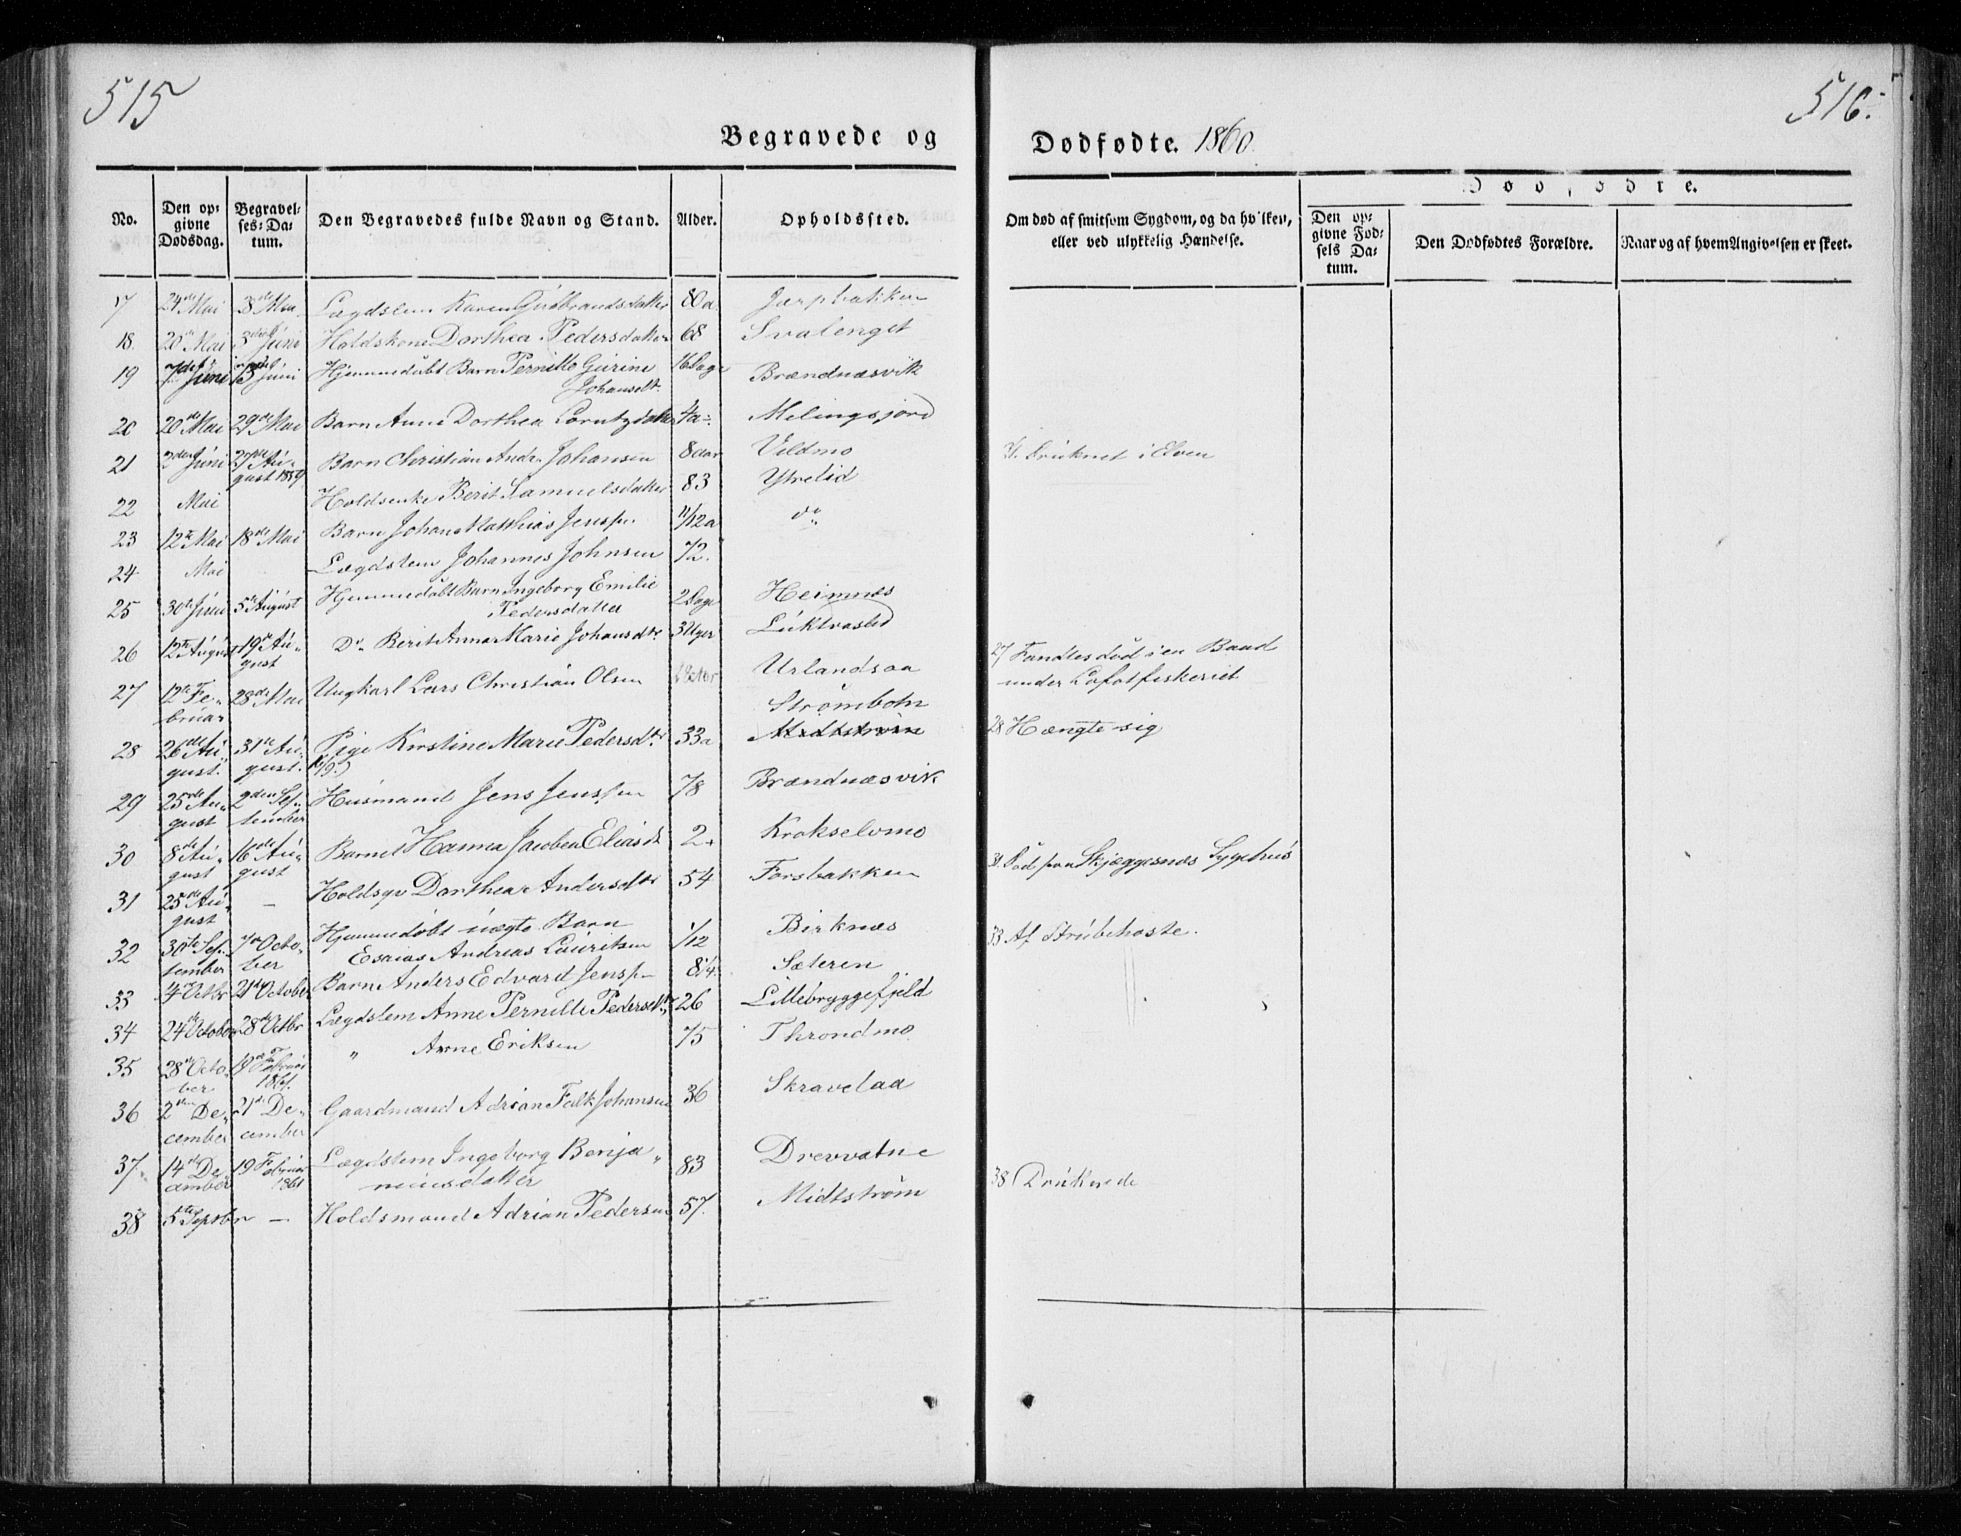 515
516.
Begravede og Dødfødte. 1860.
No.
Den op-
givne
Dødsdag.
Begravel-
ses-Da-
tum.
Den Begravedes fulde Navn og Stand.
Alder.
Opholdssted.
Om død af smitsom Sygdom, og da hvilken,
eller ved ulykkelig Hændelse.
Dødfødte.
Den op-
givne Fød-
sels Da-
tum.
Den Dødfødtes Forældre.
Naar og af hvem Angivelsen er skeet.
17 24de Mai Lægdslem Karen Gudbrandsdatter 80a
18. 20de Mai 3die Juni Holdskone Dorthea Pedersdatter 68 Svalenget
19 7de Juni Juni Hjemmedøbt Barn Pernille Gurine 16 Dage Brændnæsvik
Johansdt.
20 20de Mai 29de Mai Barn Anne Dorthea Lorntzdatter 4a Melingsjord
21 2den Juni 27de Au-
gust 1859 Barn Christian Andr. Johansen 8 aar Veldmo
21. Druknet i Elven
22 Mai Holdsenke Berit Samuelsdatter 83 Ytrelid
23 12te Mai 18de Mai Barn Johan Matthias Jenssen 11/12a do
24 Mai Lægdslem Johannes Johnsen 72.
25 30te Juni 5te August Hjemmedøbt Barn Ingeborg Emilie 2 Dage Heimnæs
Pedersdatter
26 12te August 19de Au-
gust Do Berit Anna Marie Johansdtr. 3 Uger Luktvaslid
27 12te Fe-
bruar 28de Mai Ungkarl Lars Christian Olsen Urlandsaa
27 Fandtes død i en Baad
under Lofotfiskeriet
28 26de Au-
gust. 31te Au-
gust. Pige Kirstine Marie Pedersdtr 33a Strømbotn
Midtstrøm
28 Hængte sig
29 25de Au-
gust 2den Sep-
tember Husmand Jens Jenssen 78 Brændnæsvik
30 8de Au-
gust 16de Au-
gust Barnet Hanna Jacobea Eliasdt 2. Krokselvmo
31 25de Au-
gust — Holdsqv Dorthea Andersdtr 54 Forsbakken
31. Død paa Skjæggesnæs Sygehus
32 30te Sep-
tember 7de Octo-
ber Hjemmedøbt uægte Barn
Esaias Andreas Lauritsen 1/12 Birknæs
33 4de Octbr 21de October Barn Anders Edvard Jenss- 8 1/4. Sæteren
33 Af Strubehoste.
34 24de October 28de Octbr Lægdslem Anne Pernille Pedersdtr 26 Lillebryggefjeld
35 28de Octo-
ber 19de Februar
1861. " Arne Eriksen 75 Throndmo
36 2den De-
cember 21de De-
cember Gaardmand Adrian Falk Johansen 36 Skravlaa
37. 14de De-
cember 19 Februar
1861 Lægdslem Ingeborg Benja-
minsdatter 83 Drevvatne
38 5te Septbr — Holdsmand Adrian Pedersen 57. Midtstrøm
38 Druknede